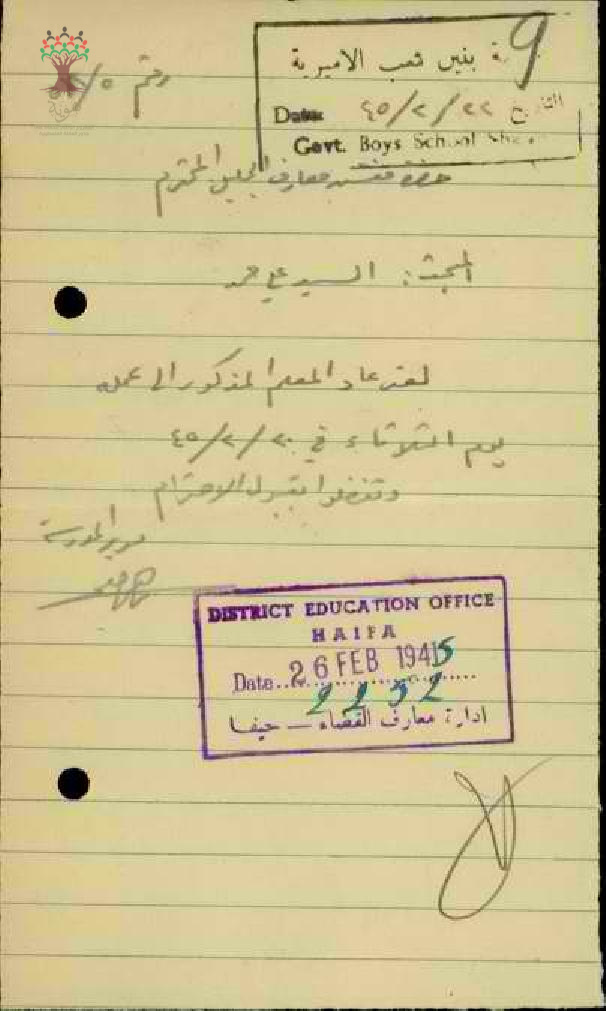 9
ة بنين شعب الاميرية
رقم ٥/
التاريخ ٤٥/٢/٢٢ Date
Govt. Boys School Sha
حضرة مفتش معارف الجليل المحترم
المبحث: السيد علي
لقد عاد المعلم المذكور الى عمله
يوم الثلاثاء في ٤٥/٢/٢٠
وتفضلوا بقبول الاحترام
مدير المدرسة
DISTRICT EDUCATION OFFICE
HAIFA
Date 26 FEB 1945
2232
ادارة معارف القضاء — حيفا